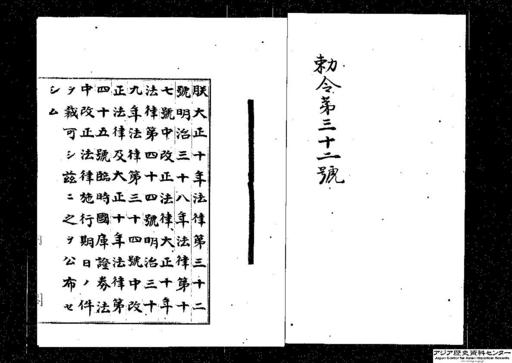 勅令第三十二號
朕大正十年法律第三十二
號明治三十八年法律第十
七號中改正法律、大正十年
法律第四十四號明治三十
九年法律第三十四號中改
正法律及大正十年法律第
四十五號臨時國庫證券法
中改正法律施行期日ノ件
ヲ裁可シ茲ニ之ヲ公布セ
シム
アジア歴史資料センター
Japan Center for Asian Historical Records